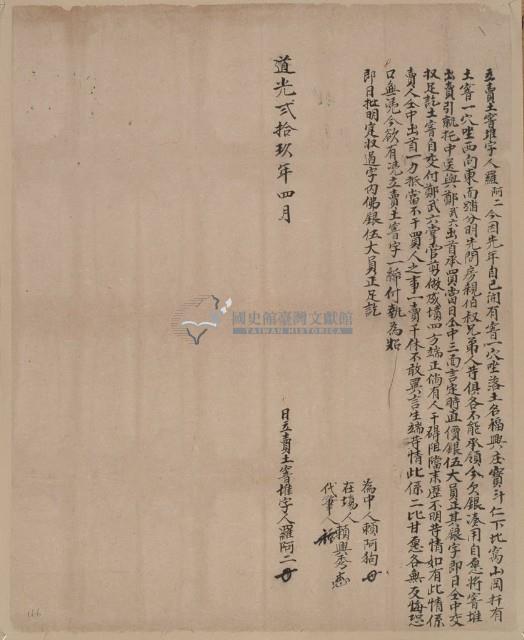 立賣土窨堆字人羅阿二今因先年自己開有窨一穴坐落土名福興庄寶斗仁下比窩山岡扦有
土窨一穴坐西向東南踏分明先問房親伯叔兄弟人等俱各不能承領今欠銀湊用自愿將窨堆
出賣引就托中送與鄭武六出首承買當日仝中三面言定時直價銀伍大員正其銀字即日仝中交
收足訖土窨自交付鄭武六掌管剪做成墳四方端正倘有人干碍阻擋來歷不明等情如有此情係
賣人仝中出首一力抵當不干買人之事一賣千休不敢異言生端等情此係二比甘愿各無反悔恐
口無憑今欲有憑立賣土窨字一紙付執為炤
即日批明定收過字內佛銀伍大員正足訖
為中人賴阿狗
在場人
代筆人賴興秀
道光弍拾玖年四月 日立賣土窨堆字人羅阿二
國史館臺灣文獻館
TAIWAN HISTORICA
166